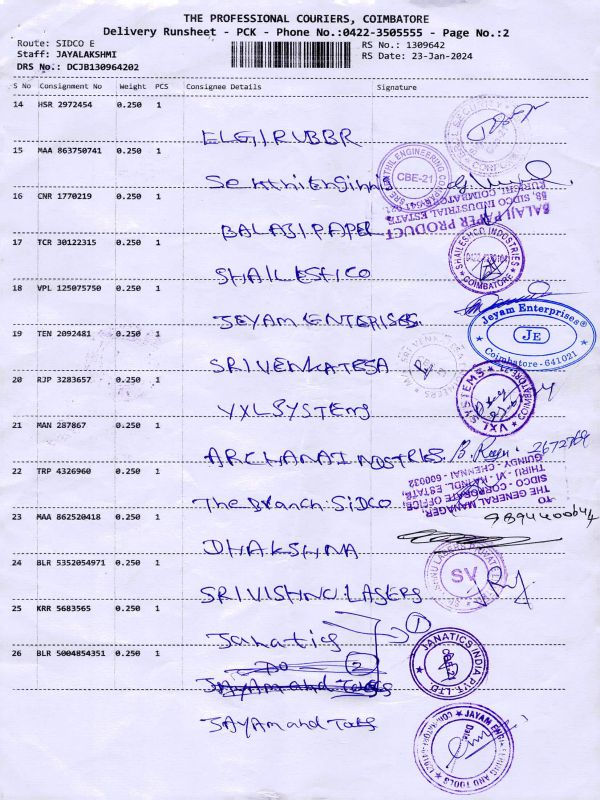 THE PROFESSIONAL COURIERS, COIMBATORE
Delivery Runsheet - PCK - Phone No.:0422-3505555 - Page No.:2
Route: SIDCO E
RS No.: 1309642
Staff: JAYALAKSHMI
RS Date: 23-Jan-2024
DRS No.: DCJB130964202
S No Consignment No Weight PCS Consignee Details Signature
14 HSR 2972454 0.250 1
ELGIRUBBR
15 MAA 863750741 0.250 1
SENTHIL ENGINEERING COMPANY
CBE-21
16 CNR 1770219 0.250 1
BALAJI PAPER
BALAJI PAPER PRODUCT
88, SIDCO INDUSTRIAL ESTATE
KURICHI, COIMBATORE
17 TCR 30122315 0.250 1
SHAILESHCO
SHAILESHCO. INDUSTRIES
COIMBATORE
18 VPL 125075750 0.250 1
JEYAM ENTERISES.
Jeyam Enterprises
JE
Coimbatore - 641021
19 TEN 2092481 0.250 1
SRIVENKATESA
20 RJP 3283657 0.250 1
VXLSYSTEMS
VXL SYSTEMS
21 MAN 287867 0.250 1
ARCHANAINDSTRIES.
22 TRP 4326960 0.250 1
The Branch SiDCO
TO
THE GENERAL MANAGER,
SIDCO - CORPORATE OFFICE,
GUINDY - CHENNAI - 600032
23 MAA 862520418 0.250 1
DHAKSHNA
24 BLR 5352054971 0.250 1
SRIVISHNU.LASERS
SV
25 KRR 5683565 0.250 1
Janatics
1
JANATICS INDIA PVT. LTD.
26 BLR 5004854351 0.250 1
2
JAYAM and Tools
JAYAM and Tools
JAYAM ENGINEERING AND TOOLS